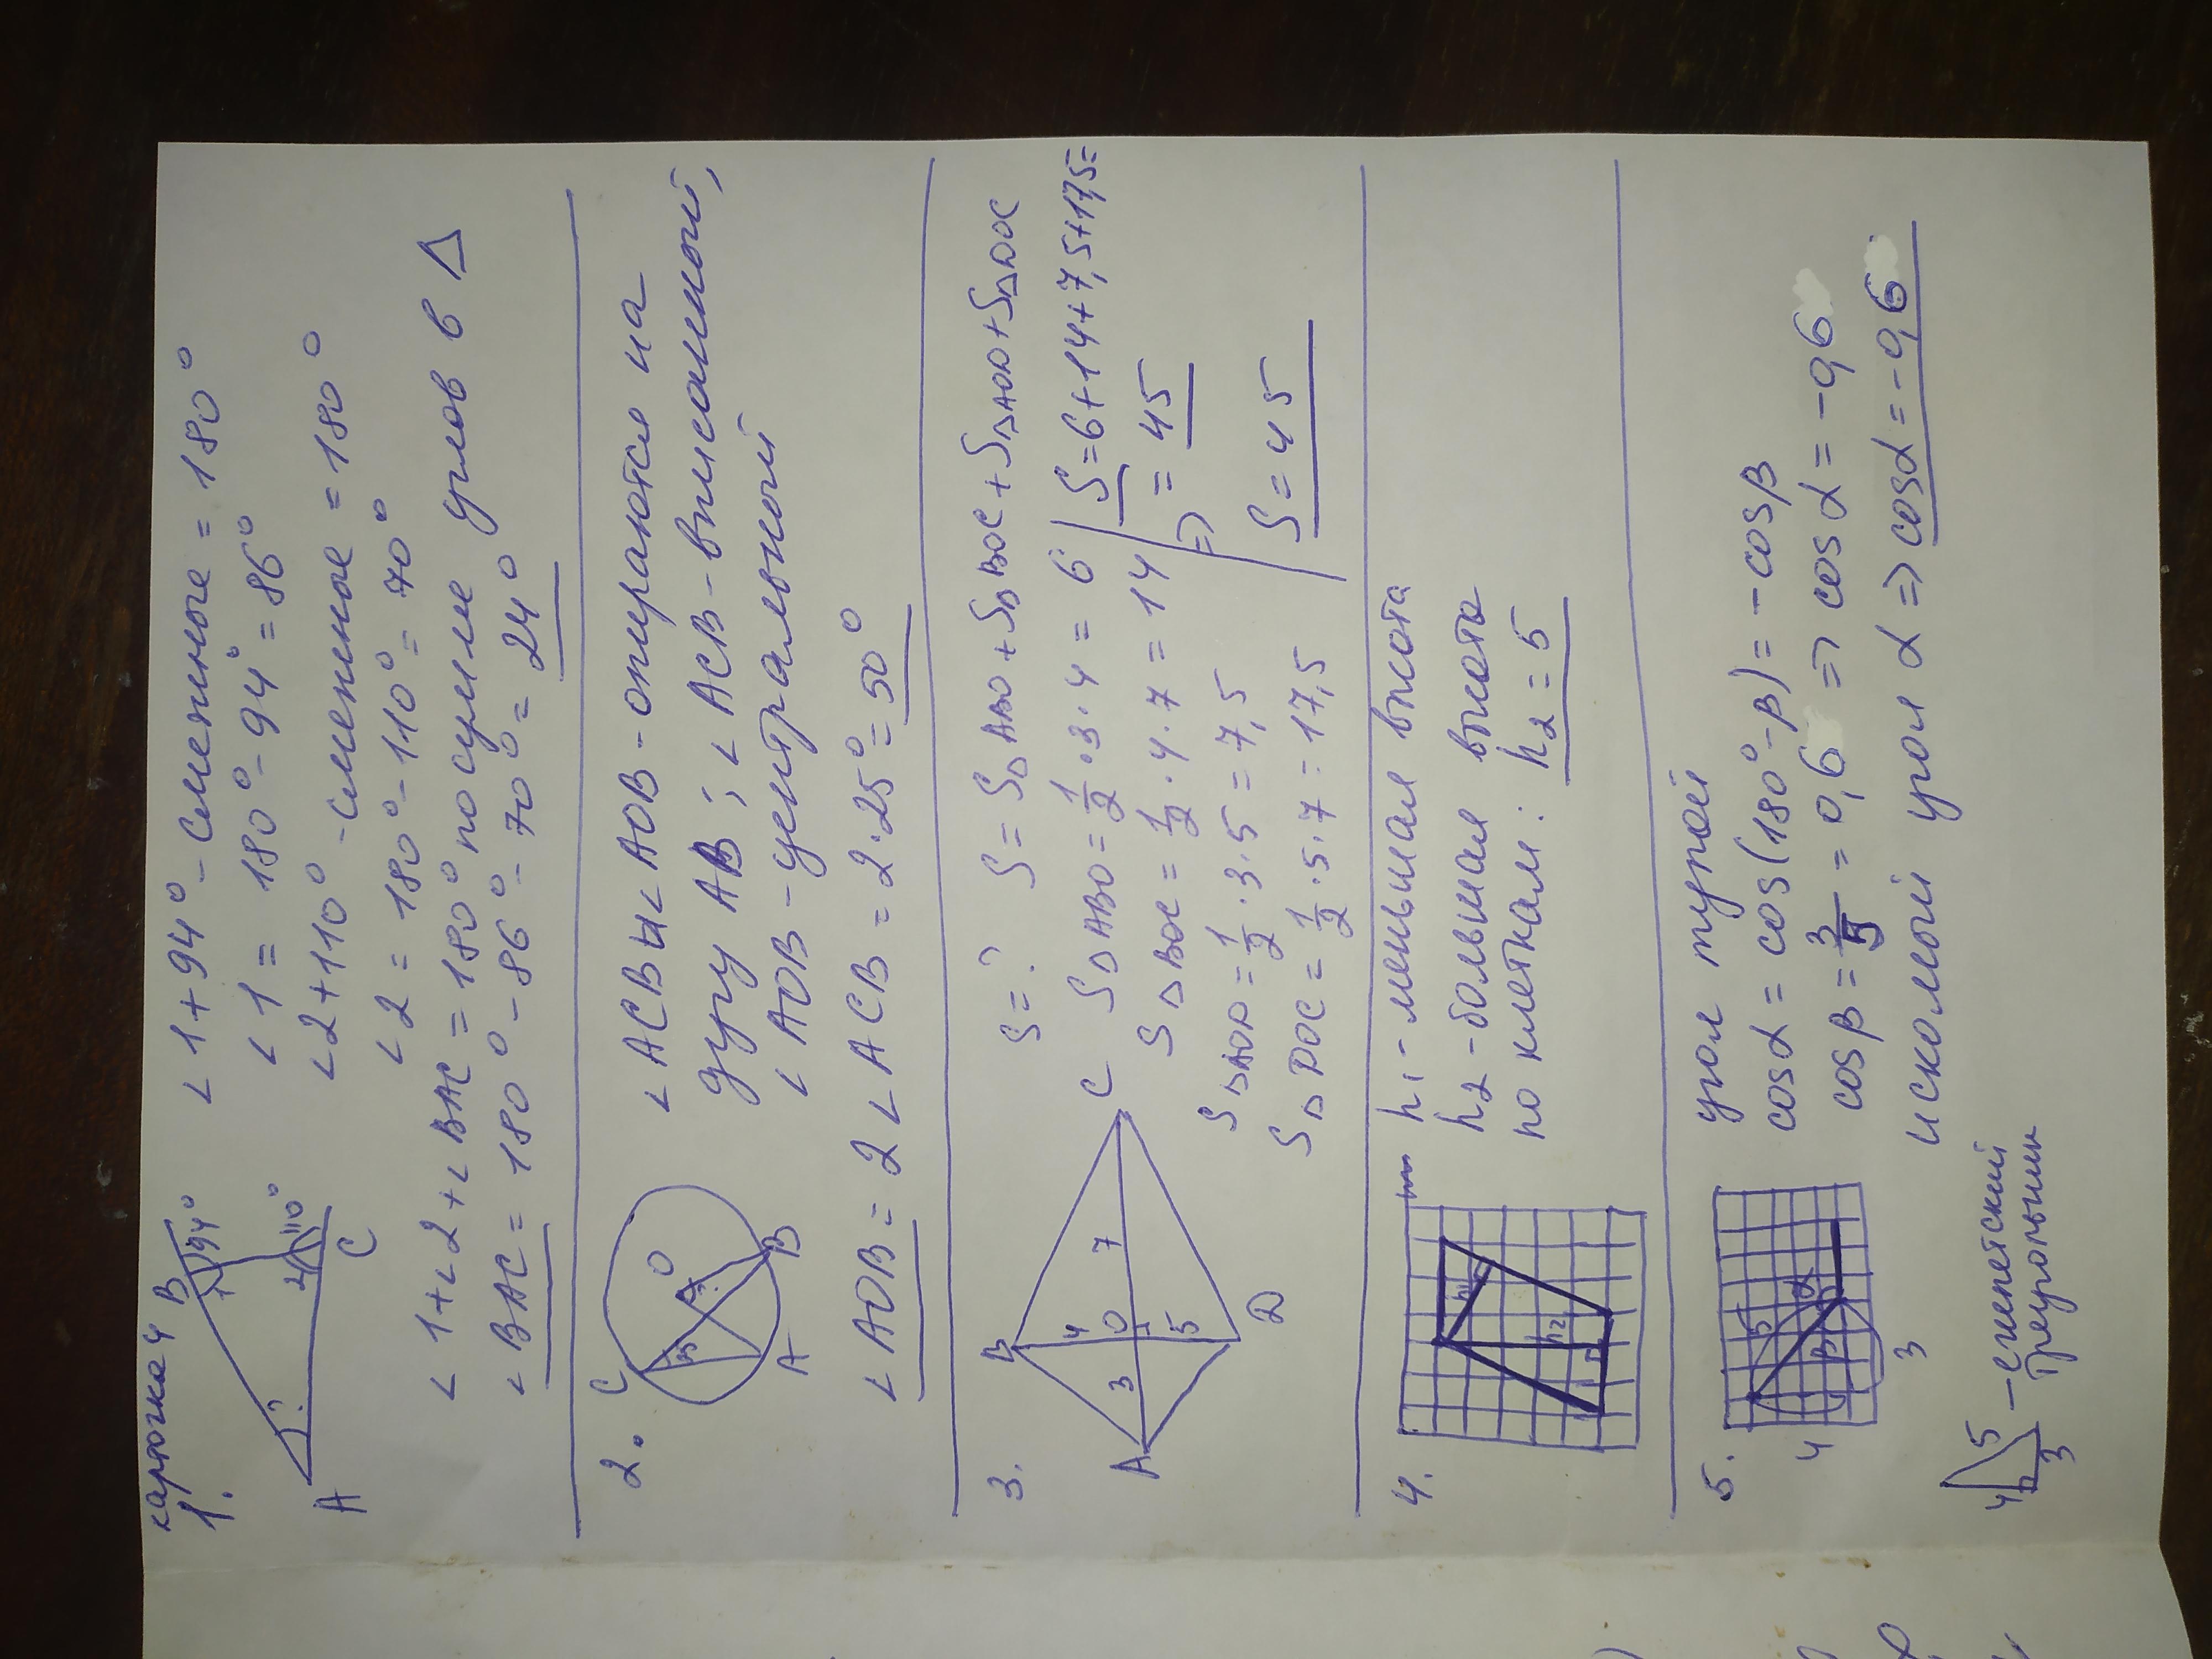 карточка 4
1.
A
B
C
?
1
94°
2
110°
∠1+94° - смежные = 180°
∠1 = 180° - 94° = 86°
∠2+110° - смежные = 180°
∠2 = 180° - 110° = 70°
∠1+∠2+∠BAC = 180° по сумме углов в △
∠BAC = 180° - 86° - 70° = 24°
2.
C
O
?
A
B
∠ACB и ∠AOB - опираются на
дугу AB; ∠ACB - вписанный,
∠AOB - центральный
∠AOB = 2∠ACB = 2·25° = 50°
3.
A
B
C
D
O
3
4
7
5
S=? S = S△ABO + S△BOC + S△AOD + S△DOC
S△ABO = 1/2 · 3 · 4 = 6
S△BOC = 1/2 · 4 · 7 = 14
S△AOD = 1/2 · 3 · 5 = 7,5
S△DOC = 1/2 · 5 · 7 = 17,5
=> S=6+14+7,5+17,5=
= 45
S = 45
4.
h1
h2
h1 - меньшая высота
h2 - большая высота
по клеткам: h2 = 5
5.
4
5
β
α
3
угол тупой
cosα = cos(180°-β) = -cosβ
cosβ = 3/5 = 0,6 => cosα = -0,6
искомый угол α => cosα = -0,6
4
5
3
- египетский
треугольник